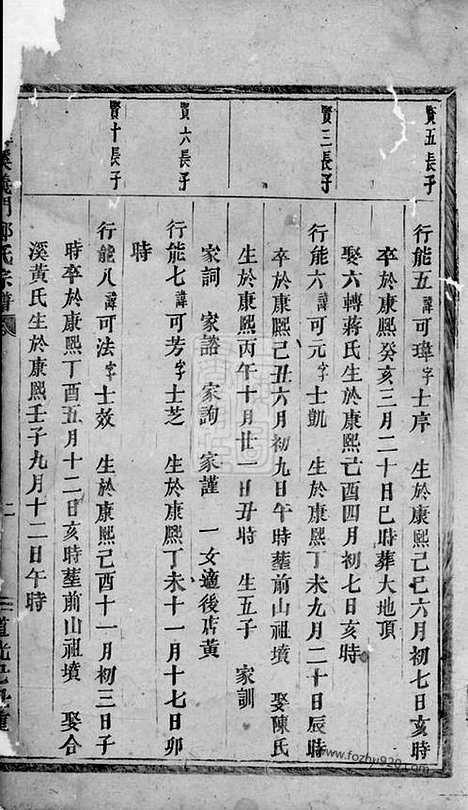 賢五長子
行能五諱可瑋字士序　生於康熙己巳六月初七日亥時
卒於康熙癸亥三月二十日巳時葬大地頂
娶六轉蔣氏生於康熙己酉四月初七日亥時
賢三長子
行能六諱可元字士凱　生於康熙丁未九月二十日辰時
卒於康熙己丑六月初九日午時塟前山祖墳　娶陳氏
生於康熙丙午十月廿一日丑時　生五子　家訓
家詞　家諮　家詢　家謹　一女適後店黄
賢六長子
行能七諱可芳字士芝　生於康熙丁未十一月十七日卯
時
賢十長子
行能八諱可法字士效　生於康熙己酉十一月初三日子
時卒於康熙丁酉五月十二日亥時塟前山祖墳　娶合
溪黄氏生於康熙壬子九月十二日午時
溪義門鄭氏宗譜
道光己
www.fozhu920.com